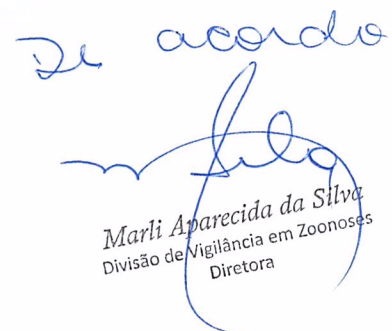 De acordo
Silva
Marli Aparecida da Silva
Divisão de Vigilância em Zoonoses
Diretora